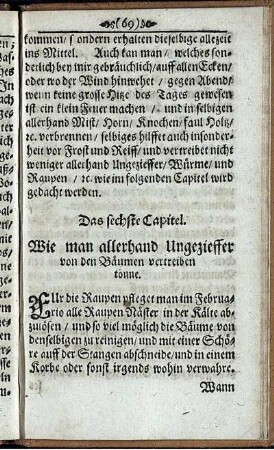 (69)
kommen / sondern erhalten dieselbige allezeit
ins Mittel. Auch kan man / welches son-
derlich bey mir gebräuchlich / auff allen Ecken /
oder wo der Wind hinwehet / gegen Abend /
wenn keine grosse Hitz des Tages gewesen
ist ein klein Feuer machen / und in selbigen
allerhand Mist / Horn / Knochen / faul Holtz /
ꝛc. verbrennen / selbiges hilfft auch insonder-
heit vor Frost und Reiff / und vertreibet nicht
weniger allerhand Ungezieffer / Würme / und
Raupen / ꝛc. wie im folgenden Capitel wird
gedacht werden.
Das sechste Capitel.
Wie man allerhand Ungezieffer
von den Bäumen vertreiben
könne.
FUr die Raupen pfleget man im Februa-
rio alle Raupen Näster in der Kälte ab-
zulösen / und so viel möglich die Bäume von
denselbigen zu reinigen / und mit einer Schö-
re auff der Stangen abschneide / und in einem
Korbe oder sonst irgends wohin verwahre.
Wann